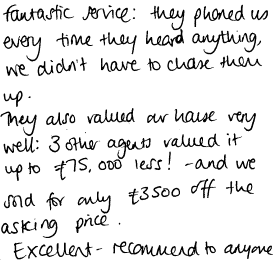 fantastic service: they phoned us
every time they heard anything,
we didn't have to chase them
up.
They also valued our house very
well: 3 other agents valued it
up to £75,000 less! - and we
sold for only £3500 off the
asking price.
Excellent - recommend to anyone